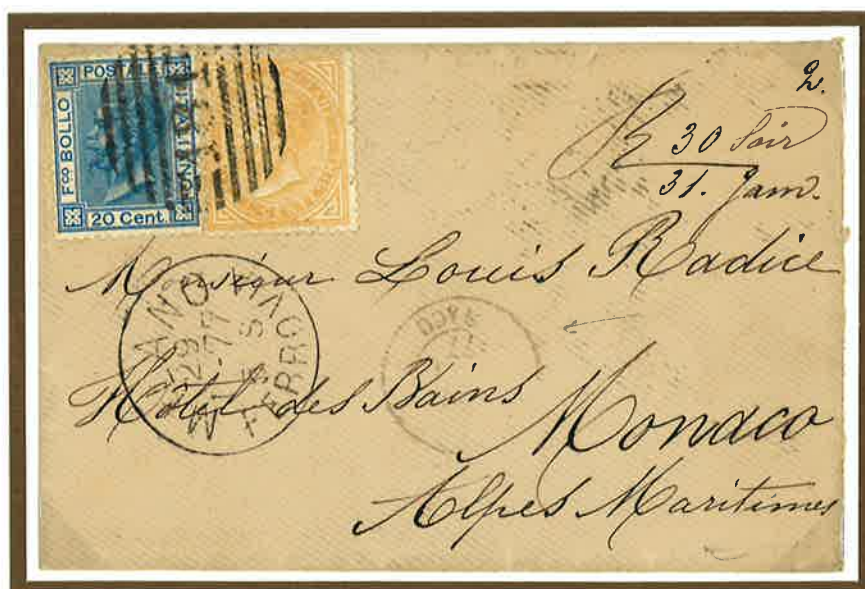 POSTALE
Fco BOLLO
ITALIANO
20 Cent.
2.
R 30 Soir
31. Janv.
Monsieur Louis Radice
MILANO
29
77
FERROVIA
Hôtel des Bains
Monaco
Alpes Maritimes